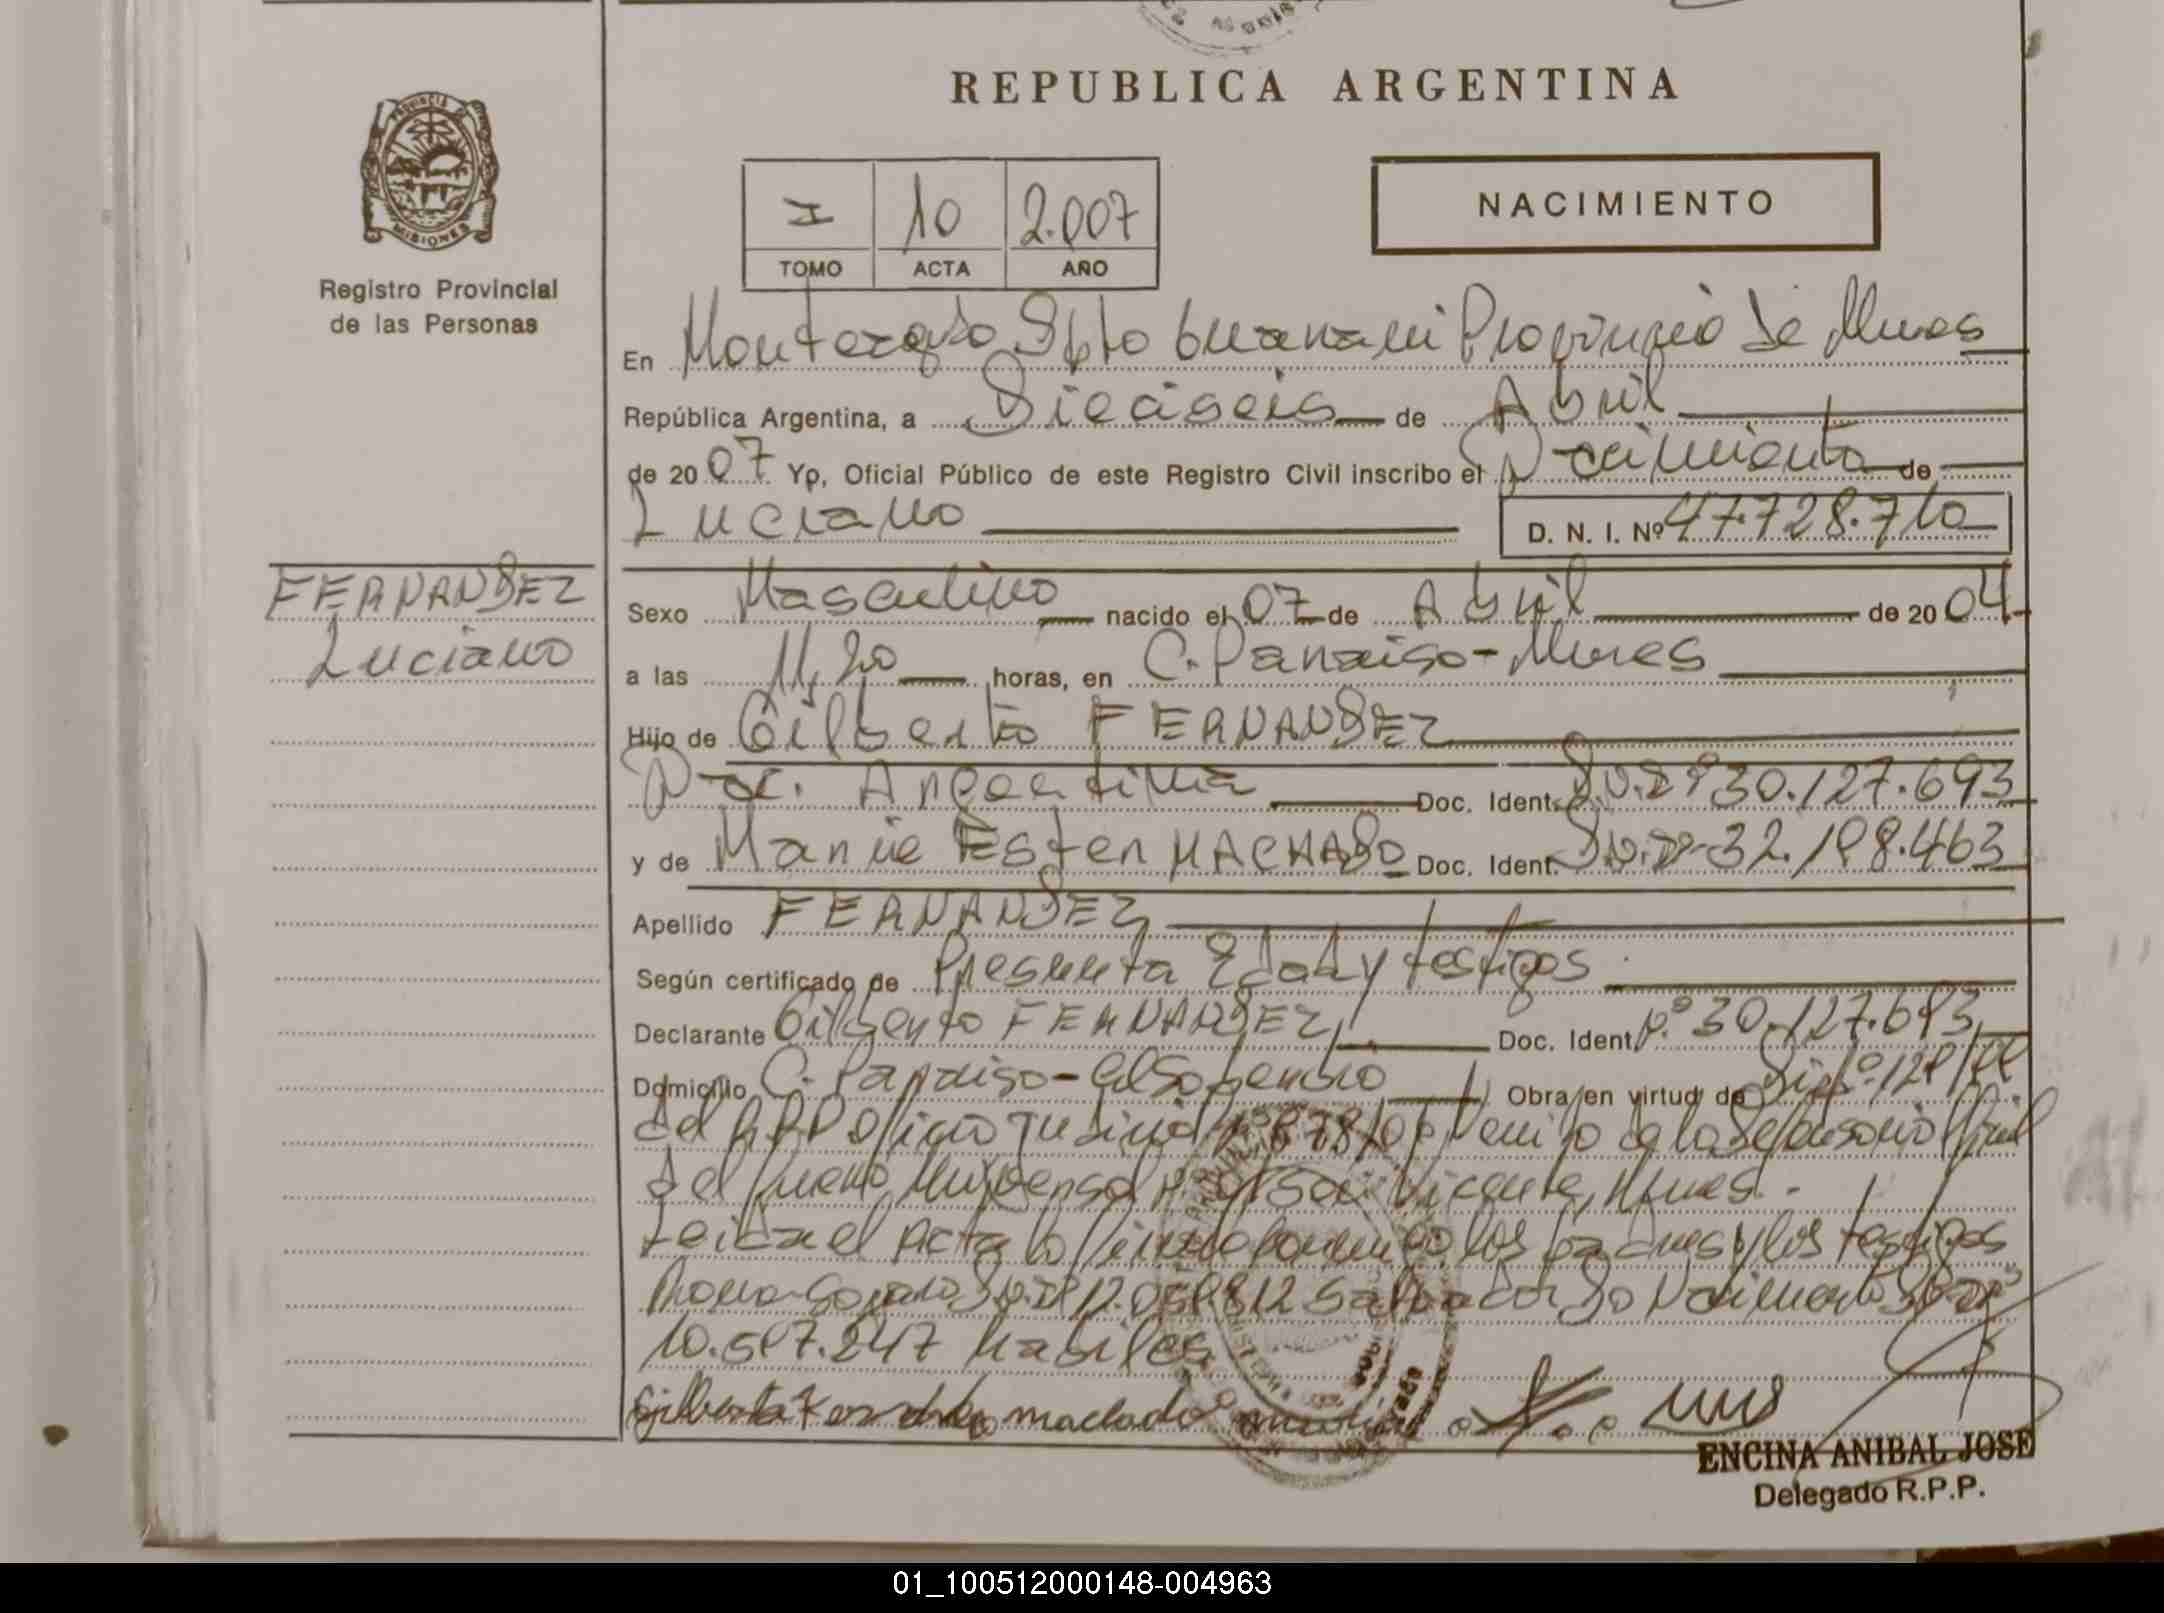 REPUBLICA ARGENTINA
PROVINCIA DE
MISIONES
Registro Provincial
de las Personas
I 10 2.007
TOMO ACTA AÑO
NACIMIENTO
En Montecarlo Dpto Provincia de Mnes
República Argentina, a Dieciseis de Abril
de 2007 Yo, Oficial Público de este Registro Civil inscribo el Nacimiento de
Luciano D. N. I. Nº 47.728.710
FERNANDEZ
Luciano
Sexo Masculino nacido el 07 de Abril de 2004
a las 11,20 horas, en C. Paraiso-Mnes
Hijo de Gilberto FERNANDEZ
Nac. Argentina Doc. Ident. 30.127.693
y de Maria Ester MACHADO Doc. Ident. 32.198.463
Apellido FERNANDEZ
Según certificado de Presunta Edad y testigos
Declarante Gilberto FERNANDEZ Doc. Ident. Nº 30.127.693
Domicilio C. Paraiso-El Soberbio Obra en virtud de
del RPP Oficio Judicial de la Defensoria Oficial
del fuero Universal San Vicente, Mnes.-
Leida el Acta la firman los padres y los testigos
Do Nacimento
10.597.247 habiles
machado
ENCINA ANIBAL JOSE
Delegado R.P.P.
01_100512000148-004963